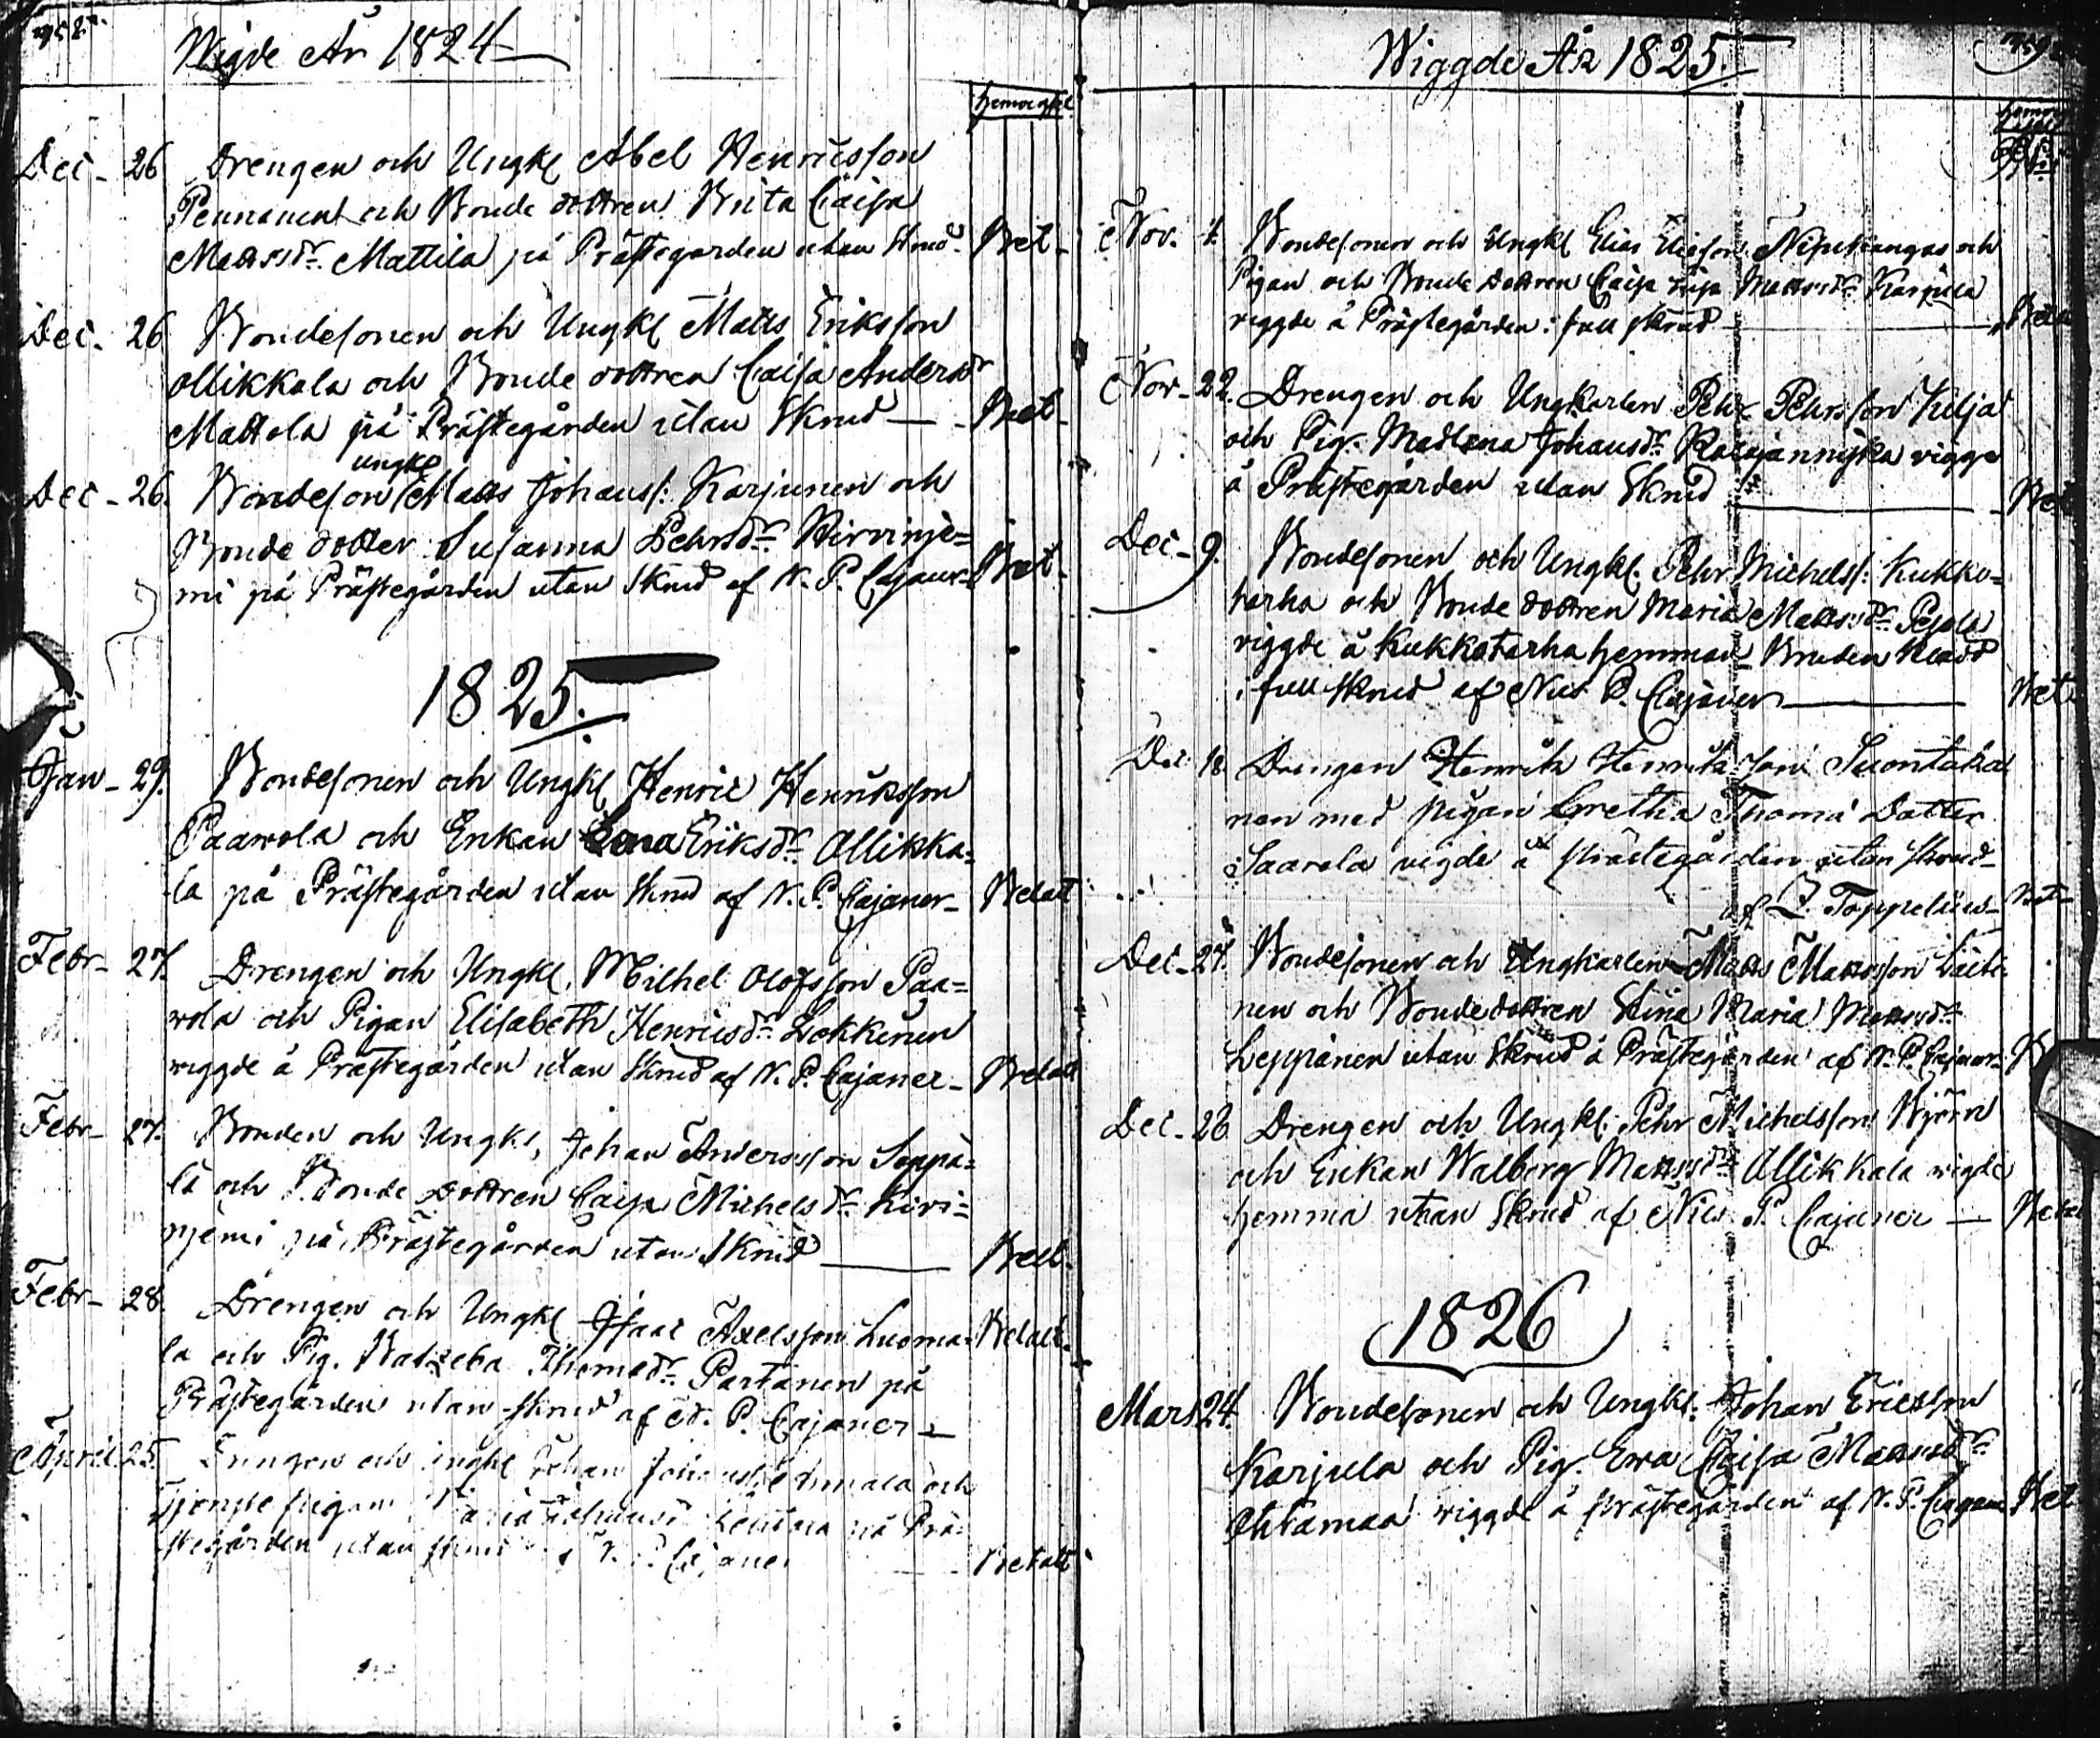 Wigde År 1824
Dec - 26 Drengen och Ungkl Abel Henricsson
Pennanen och Bonde dottren Brita Caisa
Mattsdr. Mattila på Prästegården utan Skrud. Bet.
Dec. 26 Bondesonen och Ungkl Matts Eriksson
Ollikkala och Bonde dottren Caisa Andersdr
Mattola på Prästegården utan Skrud — Bet.
ungkl
Dec - 26. Bondeson Matts Johanss: Karjunen och
Bonde dotter Susanna Pehrsdr. Hirvinje=
mi på Prästegården utan Skrud af N. P. Cajaner Bet.
1825.
Jan - 29. Bondesonen och Ungkl Henric Henriksson
Paawola och Enkan Lena Eriksdr. Ollikka=
la på Prästegården utan Skrud af N. P. Cajaner - Betalt
Febr - 27. Drengen och Ungkl. Michel Olofsson Paa=
wola och Pigan Elisabeth Henricsdr. Lokkenen
viggde å Prästegården utan Skrud af N. P. Cajaner - Betalt
Febr - 27. Bonden och Ungkl, Johan Andersson Seppä=
lä och Bonde Dottren Caisa Michelsdr. Kivi=
njemi på Prästegården utan Skrud — Betl.
Febr - 28. Drengen och Ungkl Isaac Axelsson Luoma= Betalt.
la och Pig. Batzeba Thomadr. Partanen på
Prästegården utan skrud af N. P. Cajaner -
April. 25. Drengen och ungkl Johan
Tjenste pigan Maria på Prä=
stegården utan skrud af N. P. Cajaner — Betalt
Wiggde År 1825.
Nov. Bondesonen och Ungkl Elias Eliasson och
Pigan och Bonde dottren Caisa Mattsdr. Karjula
viggde å Prästegården i full skrud —
Nov - 22. Drengen och Ungkarlen Pehr Pehrsson Kilja
och Pig. Madlena Johansdr. vigge
å Prästegården utan Skrud — Bet
Dec - 9. Bondesonen och Ungkl. Pehr Michelss: Kukko=
tarha och Bonde dottren Maria Mattsdr.
viggde å Kukkotarha hemman Bruden Klädd
i full Skrud af Nils P. Cajaner — Bet.
Dec 18 Drengen Henrik Henriks son Suontaka
nen med pigan Gretha Thoma Dotter
Saarela vigde å prästegården utan skrud -
af Z. Toppelius - Bet
Dec - 27. Bondesonen och Ungkarlen Matts Mattsson
nen och Bondedottren Stina Maria Mattsdr
Leppänen utan Skrud å Prästegården af N. P. Cajaner
Dec - 28 Drengen och Ungkl. Pehr Michelsson Björn
och Enkan Walborg Mattsdr. Ollikkala vigde
hemma utan Skrud af Nils P. Cajaner — Betal
1826
Mars 24. Bondesonen och Ungkl. Johan Ericsson
Karjula och Pig. Ewa Caisa Mattsdr.
Ahtamaa viggde å prästegården af N. P. Cajaner Bet